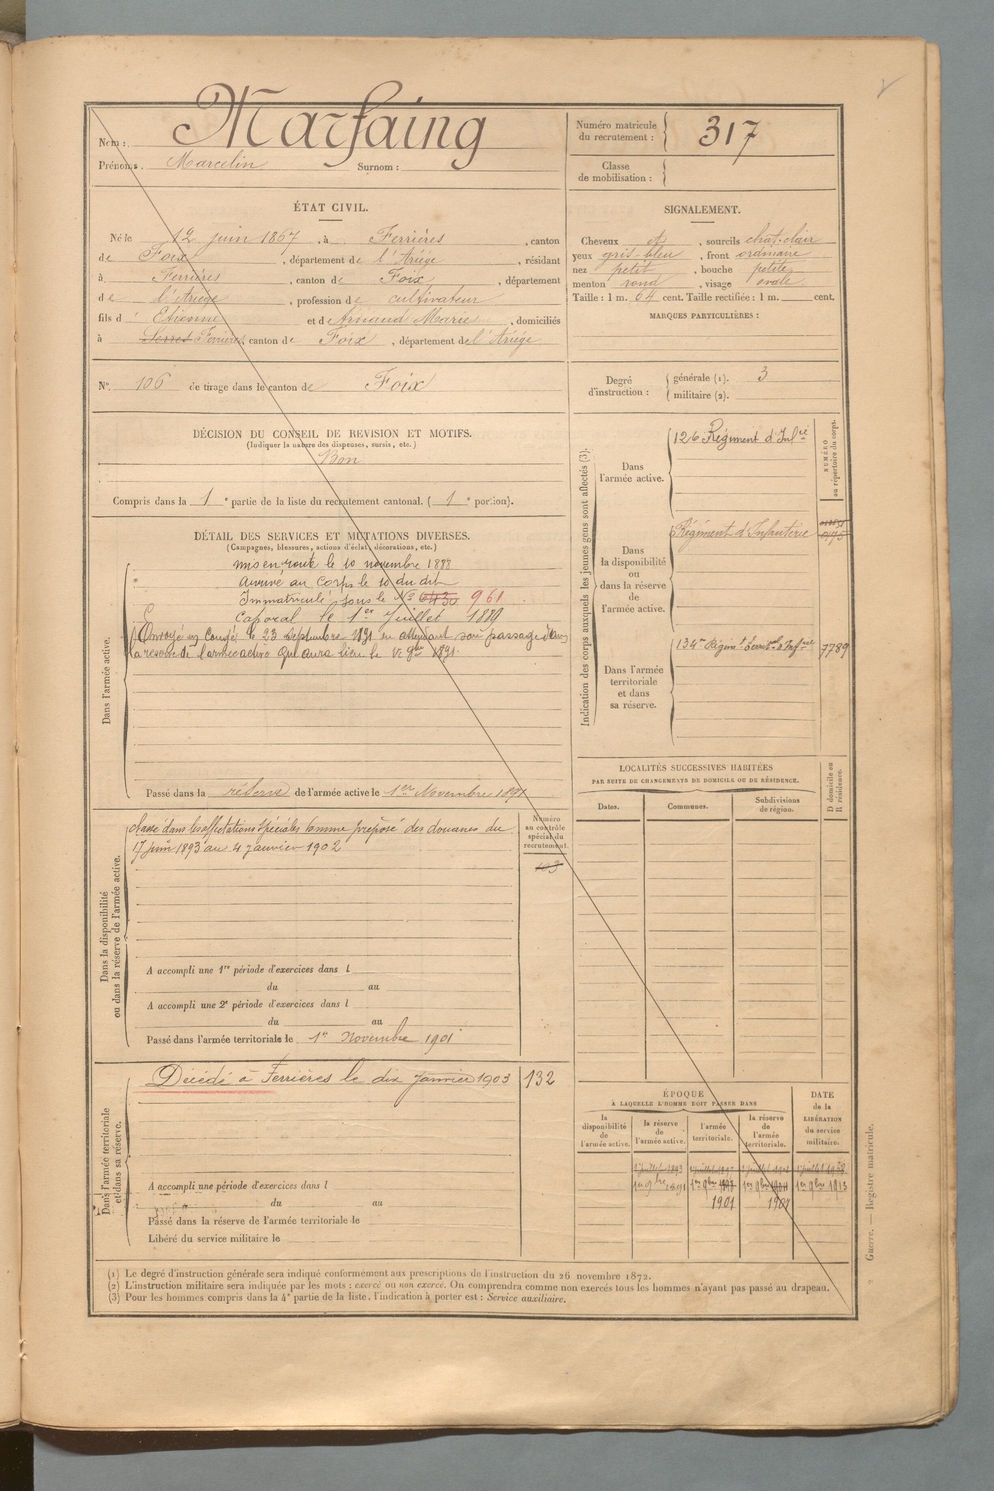 Nom : Marfaing
Prénoms : Marcelin Surnom :
Numéro matricule du recrutement : 317
Classe de mobilisation :
ÉTAT CIVIL.
Né le 12 juin 1867, à Ferrières, canton
de Foix, département de l'Ariège, résidant
à Ferrières, canton de Foix, département
de l'Ariège, profession de cultivateur
fils d' Etienne et de Arnaud Marie, domiciliés
à Serres Ferrières, canton de Foix, département de l'Ariège
N° 106 de tirage dans le canton de Foix
DÉCISION DU CONSEIL DE REVISION ET MOTIFS.
(Indiquer la nature des dispenses, sursis, etc.)
Bon
Compris dans la 1e partie de la liste du recrutement cantonal. (1e portion).
SIGNALEMENT.
Cheveux et, sourcils chat-clair
yeux gris-bleu, front ordinaire
nez petit, bouche petite
menton rond, visage ovale
Taille : 1 m. 64 cent. Taille rectifiée : 1 m. cent.
MARQUES PARTICULIÈRES :
Degré d'instruction :
générale (1). 3
militaire (2).
DÉTAIL DES SERVICES ET MUTATIONS DIVERSES.
(Campagnes, blessures, actions d'éclat, décorations, etc.)
Dans l'armée active.
Mis en route le 10 novembre 1888
Arrivé au Corps le 10 du dit
Immatriculé sous le N° 961
Caporal le 1er Juillet 1889
Envoyé en Congé le 23 Septembre 1891 en attendant son passage dans
la réserve de l'armée active qui aura lieu le 1er 9bre 1891.
Passé dans la réserve de l'armée active le 1er Novembre 1891
Indication des corps auxquels les jeunes gens sont affectés (3).
NUMÉRO au répertoire du corps.
Dans l'armée active.
126 Régiment d'Infrie
Dans la disponibilité ou dans la réserve de l'armée active.
Régiment d'Infanterie
Dans l'armée territoriale et dans sa réserve.
134me Régimt Territl d'Infrie 7789
Dans la disponibilité ou dans la réserve de l'armée active.
Numéro au contrôle spécial du recrutement.
Classé dans les affectations spéciales comme préposé des douanes du
17 juin 1893 au 4 janvier 1902
103
A accompli une 1re période d'exercices dans l
du au
A accompli une 2e période d'exercices dans l
du au
Passé dans l'armée territoriale le 1er Novembre 1901
LOCALITÉS SUCCESSIVES HABITÉES
PAR SUITE DE CHANGEMENTS DE DOMICILE OU DE RÉSIDENCE.
D domicile ou R résidence.
Dates. Communes. Subdivisions de région.
Dans l'armée territoriale et dans sa réserve.
Décédé à Ferrières le dix Janvier 1903 132
A accompli une période d'exercices dans l
du au
Passé dans la réserve de l'armée territoriale le
Libéré du service militaire le
ÉPOQUE
À LAQUELLE L'HOMME DOIT PASSER DANS
DATE de la LIBÉRATION du service militaire.
la disponibilité de l'armée active.
la réserve de l'armée active.
l'armée territoriale.
la réserve de l'armée territoriale.
1 juillet 1893
1er 9bre 1891 1er 9bre 1er 9bre 1er 9bre 1913
1901 1907
(1) Le degré d'instruction générale sera indiqué conformément aux prescriptions de l'instruction du 26 novembre 1872.
(2) L'instruction militaire sera indiquée par les mots : exercé ou non exercé. On comprendra comme non exercés tous les hommes n'ayant pas passé au drapeau.
(3) Pour les hommes compris dans la 4e partie de la liste, l'indication à porter est : Service auxiliaire.
Guerre. — Registre matricule.